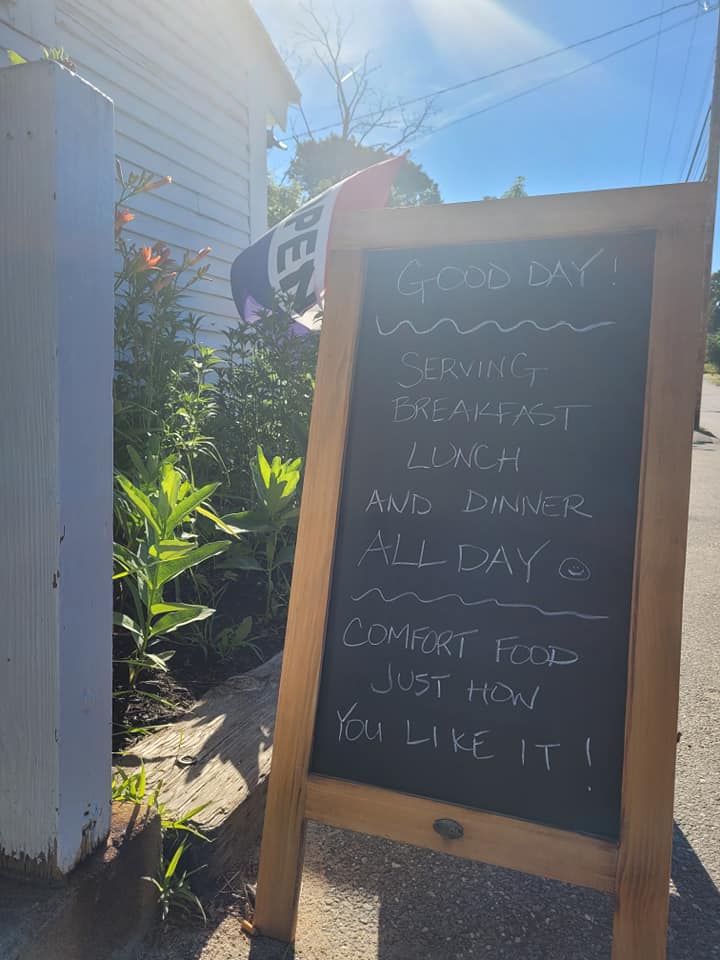 PEN
GOOD DAY!
SERVING
BREAKFAST
LUNCH
AND DINNER
ALL DAY ☺
COMFORT FOOD
JUST HOW
YOU LIKE IT!